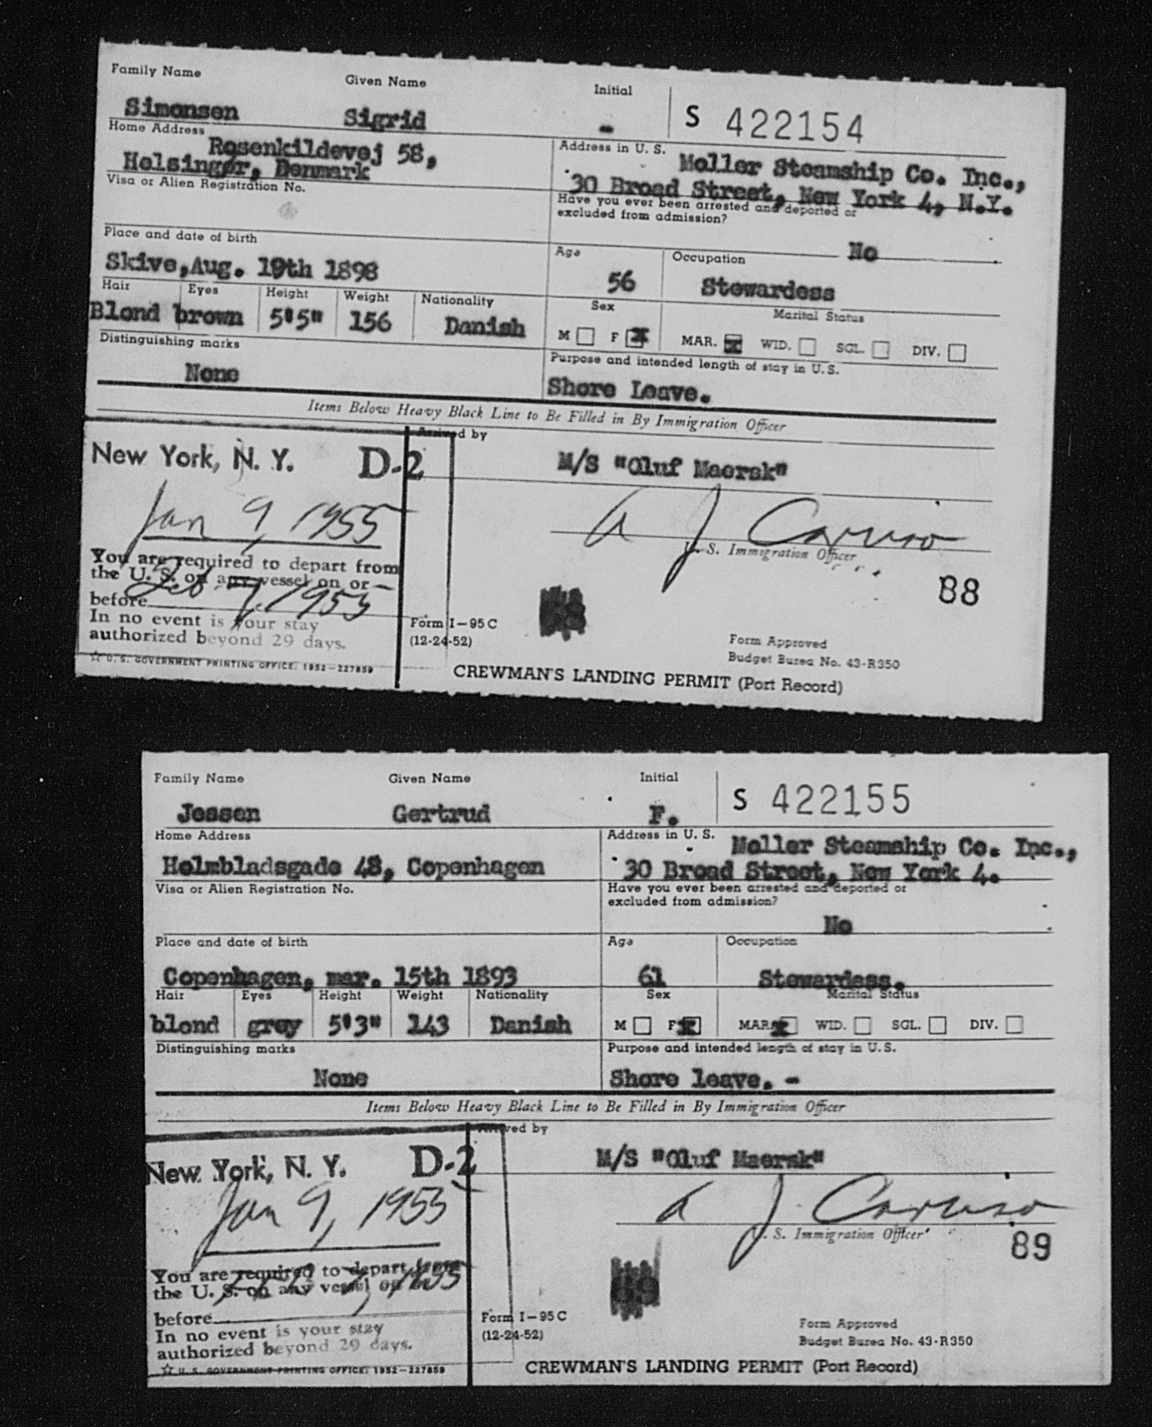 Family Name Given Name Initial
Simonsen Sigrid - S 422154
Home Address Address in U. S.
Rosenkildevej 58, Moller Steamship Co. Inc.,
Helsingør, Denmark 30 Broad Street, New York 4, N.Y.
Visa or Alien Registration No. Have you ever been arrested and deported or
excluded from admission?
No
Place and date of birth Age Occupation
Skive, Aug. 19th 1898 56 Stewardess
Hair Eyes Height Weight Nationality Sex Marital Status
Blond brown 5'5" 156 Danish M F X MAR. X WID. SGL. DIV.
Distinguishing marks Purpose and intended length of stay in U.S.
None Shore Leave.
Items Below Heavy Black Line to Be Filled in By Immigration Officer
Arrived by
New York, N. Y. D-2 M/S "Oluf Maersk"
Jan 9, 1955 A J Caruso
U. S. Immigration Officer
You are required to depart from
the U. S. on any vessel on or
before Feb 7, 1955
88
In no event is your stay Form I-95 C
authorized beyond 29 days. (12-24-52)
Form Approved
Budget Burea No. 43-R350
☆ U.S. GOVERNMENT PRINTING OFFICE: 1952-227859
CREWMAN'S LANDING PERMIT (Port Record)
Family Name Given Name Initial
Jessen Gertrud F. S 422155
Home Address Address in U. S.
Moller Steamship Co. Inc.,
Holmbladsgade 48, Copenhagen 30 Broad Street, New York 4.
Visa or Alien Registration No. Have you ever been arrested and deported or
excluded from admission?
No
Place and date of birth Age Occupation
Copenhagen, mar. 15th 1893 61 Stewardess.
Hair Eyes Height Weight Nationality Sex Marital Status
blond grey 5'3" 143 Danish M F X MAR. X WID. SGL. DIV.
Distinguishing marks Purpose and intended length of stay in U.S.
None Shore leave. -
Items Below Heavy Black Line to Be Filled in By Immigration Officer
Arrived by
New York, N. Y. D-2 M/S "Oluf Maersk"
Jan 9, 1955 A J. Caruso
U. S. Immigration Officer
89
You are required to depart from
the U. S. on any vessel on or
before Feb 7, 1955
In no event is your stay Form I-95 C
authorized beyond 29 days. (12-24-52)
Form Approved
Budget Burea No. 43-R350
☆ U.S. GOVERNMENT PRINTING OFFICE: 1952-227859
CREWMAN'S LANDING PERMIT (Port Record)